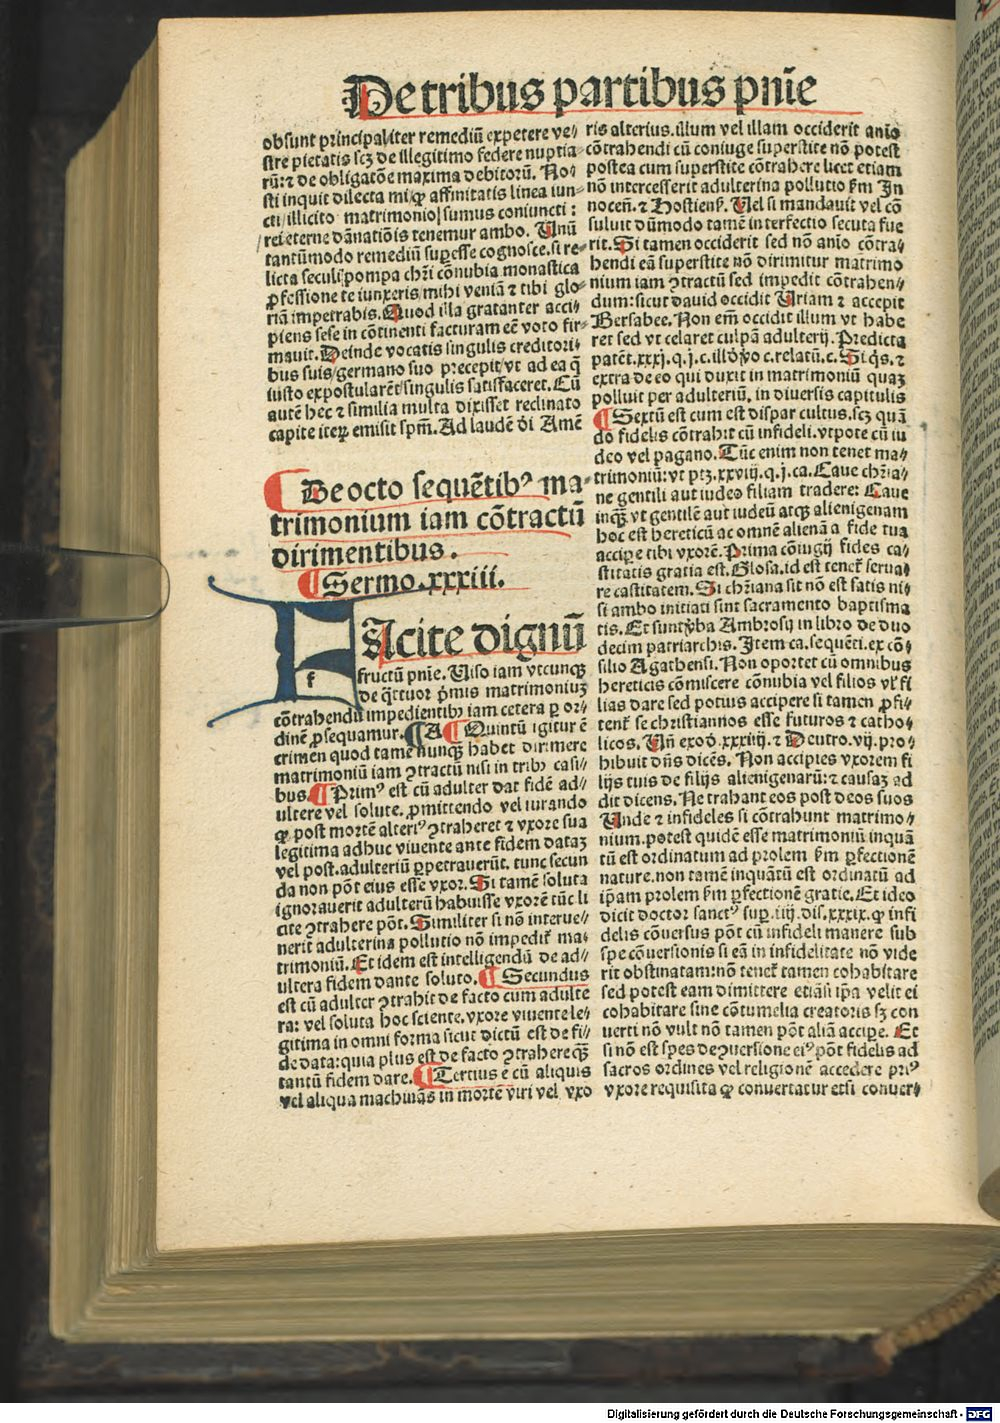 De tribus partibus pnīe
obsunt principaliter remediū expetere ve⸗
stre pietatis scꝫ de illegitimo federe nuptia⸗
rū: ⁊ de obligatōe maxima debitorū. No⸗
sti inquit dilecta mi ꝙ affinitatis linea iun⸗
cti / illicito matrimonio sumus coniuncti:
rei eterne dānatiōis tenemur ambo. Unū
tantūmodo remediū suꝑesse cognosce. si re⸗
licta seculi pompa chr̄i cōnubia monastica
ꝓfessione te iunxeris / mihi veniā ⁊ tibi glo⸗
riā impetrabis. Quod illa gratanter acci⸗
piens sese in cōtinenti facturam eē voto fir⸗
mauit. Deinde vocatis singulis creditori⸗
bus suis / germano suo precepit / vt ad ea q̄
iusto expostularēt / singulis satisfaceret. Cū
autē hec ⁊ similia multa dixisset reclinato
capite iteꝝ emisit spm̄. Ad laudē di Amē
¶ De octo sequētibꝰ ma⸗
trimonium iam cōtractū
dirimentibus.
¶ Sermo. xxxiii.
FAcite dignū
fructū pnīe. Uiso iam vtcunqꝫ
de q̈ttuor pͥmis matrimoniuꝫ
cōtrahendū impedientibꝫ iam cetera ꝑ or⸗
dinē ꝓsequamur. ¶ A ¶ Quintū igitur ē
crimen quod tamē nunqꝫ habet dirimere
matrimoniū iam ꝯtractū nisi in tribꝫ casi⸗
bus. ¶ Primꝰ est cū adulter dat fidē ad⸗
ultere vel solute. ꝓmittendo vel iurando
ꝙ post mortē alteriꝰ ꝯtraheret ⁊ vxore sua
legitima adhuc viuente ante fidem dataꝫ
vel post. adulteriū ꝑpetrauerūt. tunc secun
da non pōt eius esse vxor. Si tamē soluta
ignorauerit adulterū habuisse vxorē tūc li
cite ꝯtrahere pōt. Similiter si nō interue⸗
nerit adulterina pollutio nō impedit̄ ma⸗
trimoniū. Et idem est intelligendū de ad⸗
ultera fidem dante soluto. ¶ Secundus
est cū adulter ꝯtrahit de facto cum adulte
ra: vel soluta hoc sciente. vxore viuente le⸗
gitima in omni forma sicut dictū est de fi⸗
de data: quia plus est de facto ꝯtrahere qꝫ̄
tantū fidem dare. ¶ Tertius ē cū aliquis
vel aliqua machinās in mortē viri vel vxo
ris alterius. illum vel illam occiderit anīo
cōtrahendi cū coniuge superstite nō potest
postea cum superstite cōtrahere licet etiam
nō intercesserit adulterina pollutio ẜm In
nocen̄. ⁊ Hostienẜ. Uel si mandauit vel cō
suluit dūmodo tamē interfectio secuta fue
rit. Si tamen occiderit sed nō anīo cōtra⸗
hendi eā superstite nō dirimitur matrimo
nium iam ꝯtractū sed impedit cōtrahen⸗
dum: sicut dauid occidit Uriam ⁊ accepit
Bersabee. Non em̄ occidit illum vt habe
ret sed vt celaret culpā adulterij. Predicta
patēt. xxxj. q. j. c. illō ꝟo c. relatū. c. Si q̇s. ⁊
extra de eo qui duxit in matrimoniū quaꝫ
polluit per adulteriū. in diuersis capitulis
¶ Sextū est cum est dispar cultus. scꝫ quā
do fidelis cōtrahit cū infideli. vtpote cū iu
deo vel pagano. Tūc enim non tenet ma⸗
trimoniū: vt ptꝫ. xxviij. q. j. ca. Caue chr̄ia⸗
ne gentili aut iudeo filiam tradere: Caue
inqꝫ̄ vt gentilē aut iudeū atqꝫ alienigenam
hoc est hereticū ac omnē alienā a fide tua
acciꝑe tibi vxorē. Prima cōiugij fides ca⸗
stitatis gratia est. Glosa. id est tenet̄ serua⸗
re castitatem. Si chr̄iana sit nō est satis ni⸗
si ambo initiati sint sacramento baptisma
tis. Et sunt ꝟba Ambrosij in libro de duo
decim patriarchis. Item ca. sequēti. ex cō⸗
silio Agathensi. Non oportet cū omnibus
hereticis cōmiscere cōnubia vel filios vl̓ fi
lias dare sed potius accipere si tamen ꝓfi⸗
tent̄ se christiannos esse futuros ⁊ catho⸗
licos. Un̄ exod̓. xxxiiij. ⁊ Deutro. vij. pro⸗
hibuit dn̄s dicēs. Non accipies vxorem fi
lijs tuis de filijs alienigenarū: ⁊ causaꝫ ad
dit dicens. Ne trahant eos post deos suos
Unde ⁊ infideles si cōtrahunt matrimo⸗
nium. potest quidē esse matrimoniū inquā
tū est ordinatum ad prolem ẜm ꝑfectionē
nature. non tamen inquātū est ordinatū ad
ip̄am prolem ẜm ꝑfectionē gratie. Et ideo
dicit doctor sanctꝰ suꝑ. iiij. dis. xxxix. ꝙ infi
delis cōuersus pōt cū infideli manere sub
spe cōuersionis si eā in infidelitate nō vide
rit obstinatam: nō tenet̄ tamen cohabitare
sed potest eam dimittere etiāsi ip̄a velit ei
cohabitare sine cōtumelia creatoris sꝫ con
uerti nō vult nō tamen pōt aliā acciꝑe. Et
si nō est spes de ꝯuersione eiꝰ pōt fidelis ad
sacros ordines vel religionē accedere priꝰ
vxore requisita ꝙ conuertatur etsi conuer⸗
Digitalisierung gefördert durch die Deutsche Forschungsgemeinschaft - DFG